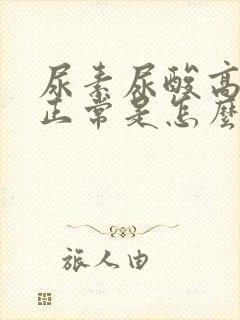 尿素尿酸高
正常是怎麼
旅人由